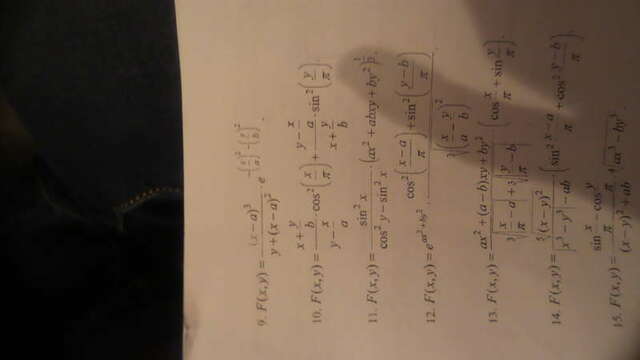 9. F(x,y) = (x-a)^3 / (y+(x-a)^2) · e^(-(x/a)^2-(y/b)^2)
10. F(x,y) = (x+y/b) / (y-x/a) · cos^2(x/π) + (y-x/a) / (x+y/b) · sin^2(y/π).
11. F(x,y) = sin^2 x / (cos^2 y - sin^2 x) · (ax^2 + abxy + by^2)
12. F(x,y) = e^(ax^2+by^2) · (cos^2((x-a)/π) + sin^2((y-b)/π)) / ∛(x/a - y/b)^2
13. F(x,y) = (ax^2 + (a-b)xy + by^2) / (∛(x/π - a) + ∛(y/π - b)) · (cos x/π + sin y/π).
14. F(x,y) = ∛(x-y)^2 / (|x^3 - y^3| - ab) · (sin^2 (x-a)/π + cos^2 (y-b)/π).
15. F(x,y) = (sin x/π - cos y/π) / ((x-y)^2 + ab) + (ax^3 - by^3).